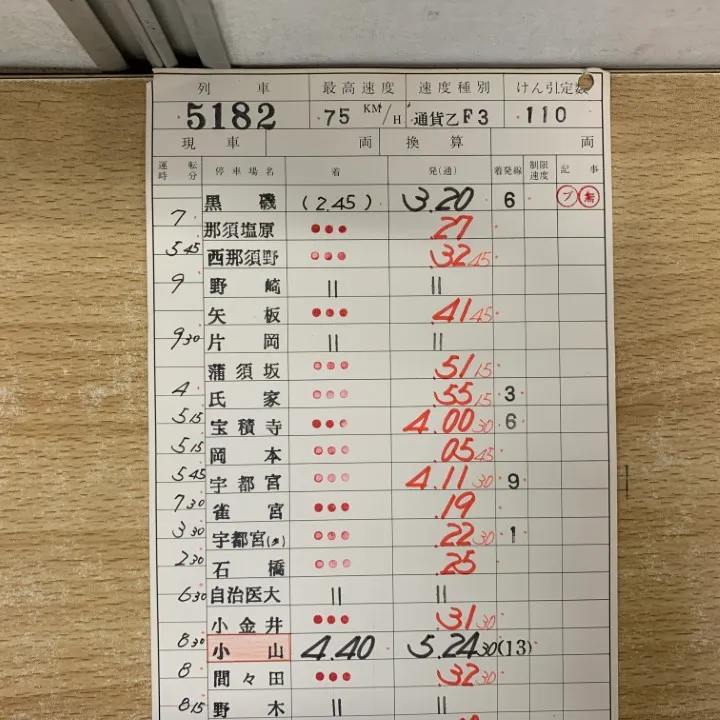 列車 最高速度 速度種別 けん引定数
5182 75 KM/H 通貨乙F3 110
現車 両 換算 両
運転時分 停車場名 着 発(通) 着発線 制限速度 記事
黒磯 (2.45) 3.20 6 ブ 無
7
那須塩原 ●●● .27
5 45
西那須野 ●●● .32 45
9
野崎 || ||
矢板 ●●● .41 45
9 30
片岡 || ||
蒲須坂 ●●● .51 15
4
氏家 ●●● .55 15 3
5 15
宝積寺 ●●● 4.00 30 6
5 15
岡本 ●●● .05 45
5 45
宇都宮 ●●● 4.11 30 9
7 30
雀宮 ●●● .19
3 30
宇都宮(タ) ●●● .22 30 1
2 30
石橋 ●●● .25
6 30
自治医大 || ||
小金井 ●●● .31 30
8 30
小山 4.40 5.24 30 (13)
8
間々田 ●●● .32 30
8 15
野木 || ||